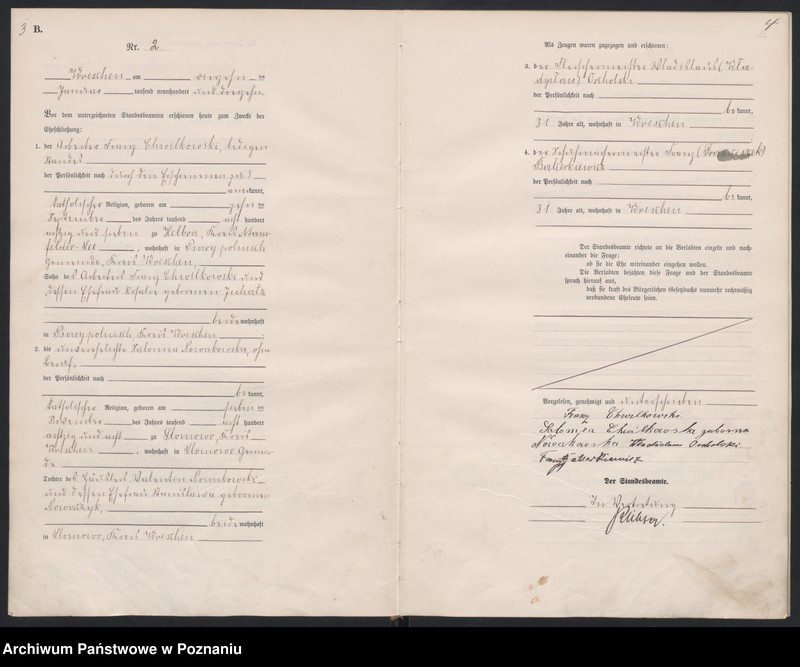 3 B.
Nr. 2
Wreschen am vierzehn ten
Januar tausend neunhundert und dreizehn
Vor dem unterzeichneten Standesbeamten erschienen heute zum Zwecke der
Eheschließung:
1. der Arbeiter Franz Chwilkowski, ledigen
Standes
der Persönlichkeit nach durch den Erschienenen zu 3
anerkannt,
katholischer Religion, geboren am zehnten
September des Jahres tausend acht hundert
achtzig und sieben zu Helbra, Kreis Mans-
felder See, wohnhaft in
gemeinde, Kreis Wreschen,
Sohn des Arbeiters Franz Chwilkowski und
dessen Ehefrau Rosalie geborenen
beide wohnhaft
in Kreis Wreschen;
2. die unverehelichte Salomea Nowakowska, ohne
Beruf,
der Persönlichkeit nach
bekannt,
katholischer Religion, geboren am sieben ten
November des Jahres tausend acht hundert
achtzig und acht zu Slomowo, Kreis
Wreschen, wohnhaft in Slomowo Gemein-
de
Tochter des Häuslers Valentin Nowakowski
und dessen Ehefrau Stanislawa geborenen
beide wohnhaft
in Slomowo, Kreis Wreschen
4
Als Zeugen waren zugezogen und erschienen:
3. der Fleischermeister Wladislaus (Wła-
dysław) Ocholski
der Persönlichkeit nach
bekannt,
31 Jahre alt, wohnhaft in Wreschen
4. der Schuhmachermeister Franz
der Persönlichkeit nach
bekannt,
31 Jahre alt, wohnhaft in Wreschen
Der Standesbeamte richtete an die Verlobten einzeln und nach-
einander die Frage:
ob sie die Ehe miteinander eingehen wollen.
Die Verlobten bejahten diese Frage und der Standesbeamte
sprach hierauf aus,
daß sie kraft des Bürgerlichen Gesetzbuchs nunmehr rechtmäßig
verbundene Eheleute seien.
Vorgelesen, genehmigt und unterschrieben
Franz Chwilkowski
Salomea Chwilkowska geborene
Nowakowska Wladislaus Ocholski
Franz
Der Standesbeamte.
In Vertretung
Archiwum Państwowe w Poznaniu